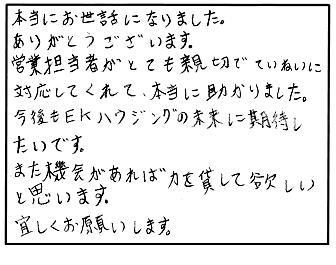 本当にお世話になりました。
ありがとうございます。
営業担当者がとても親切でていねいに
対応してくれて、本当に助かりました。
今後もEKハウジングの未来に期待し
たいです。
また機会があれば力を貸して欲しい
と思います。
宜しくお願いします。